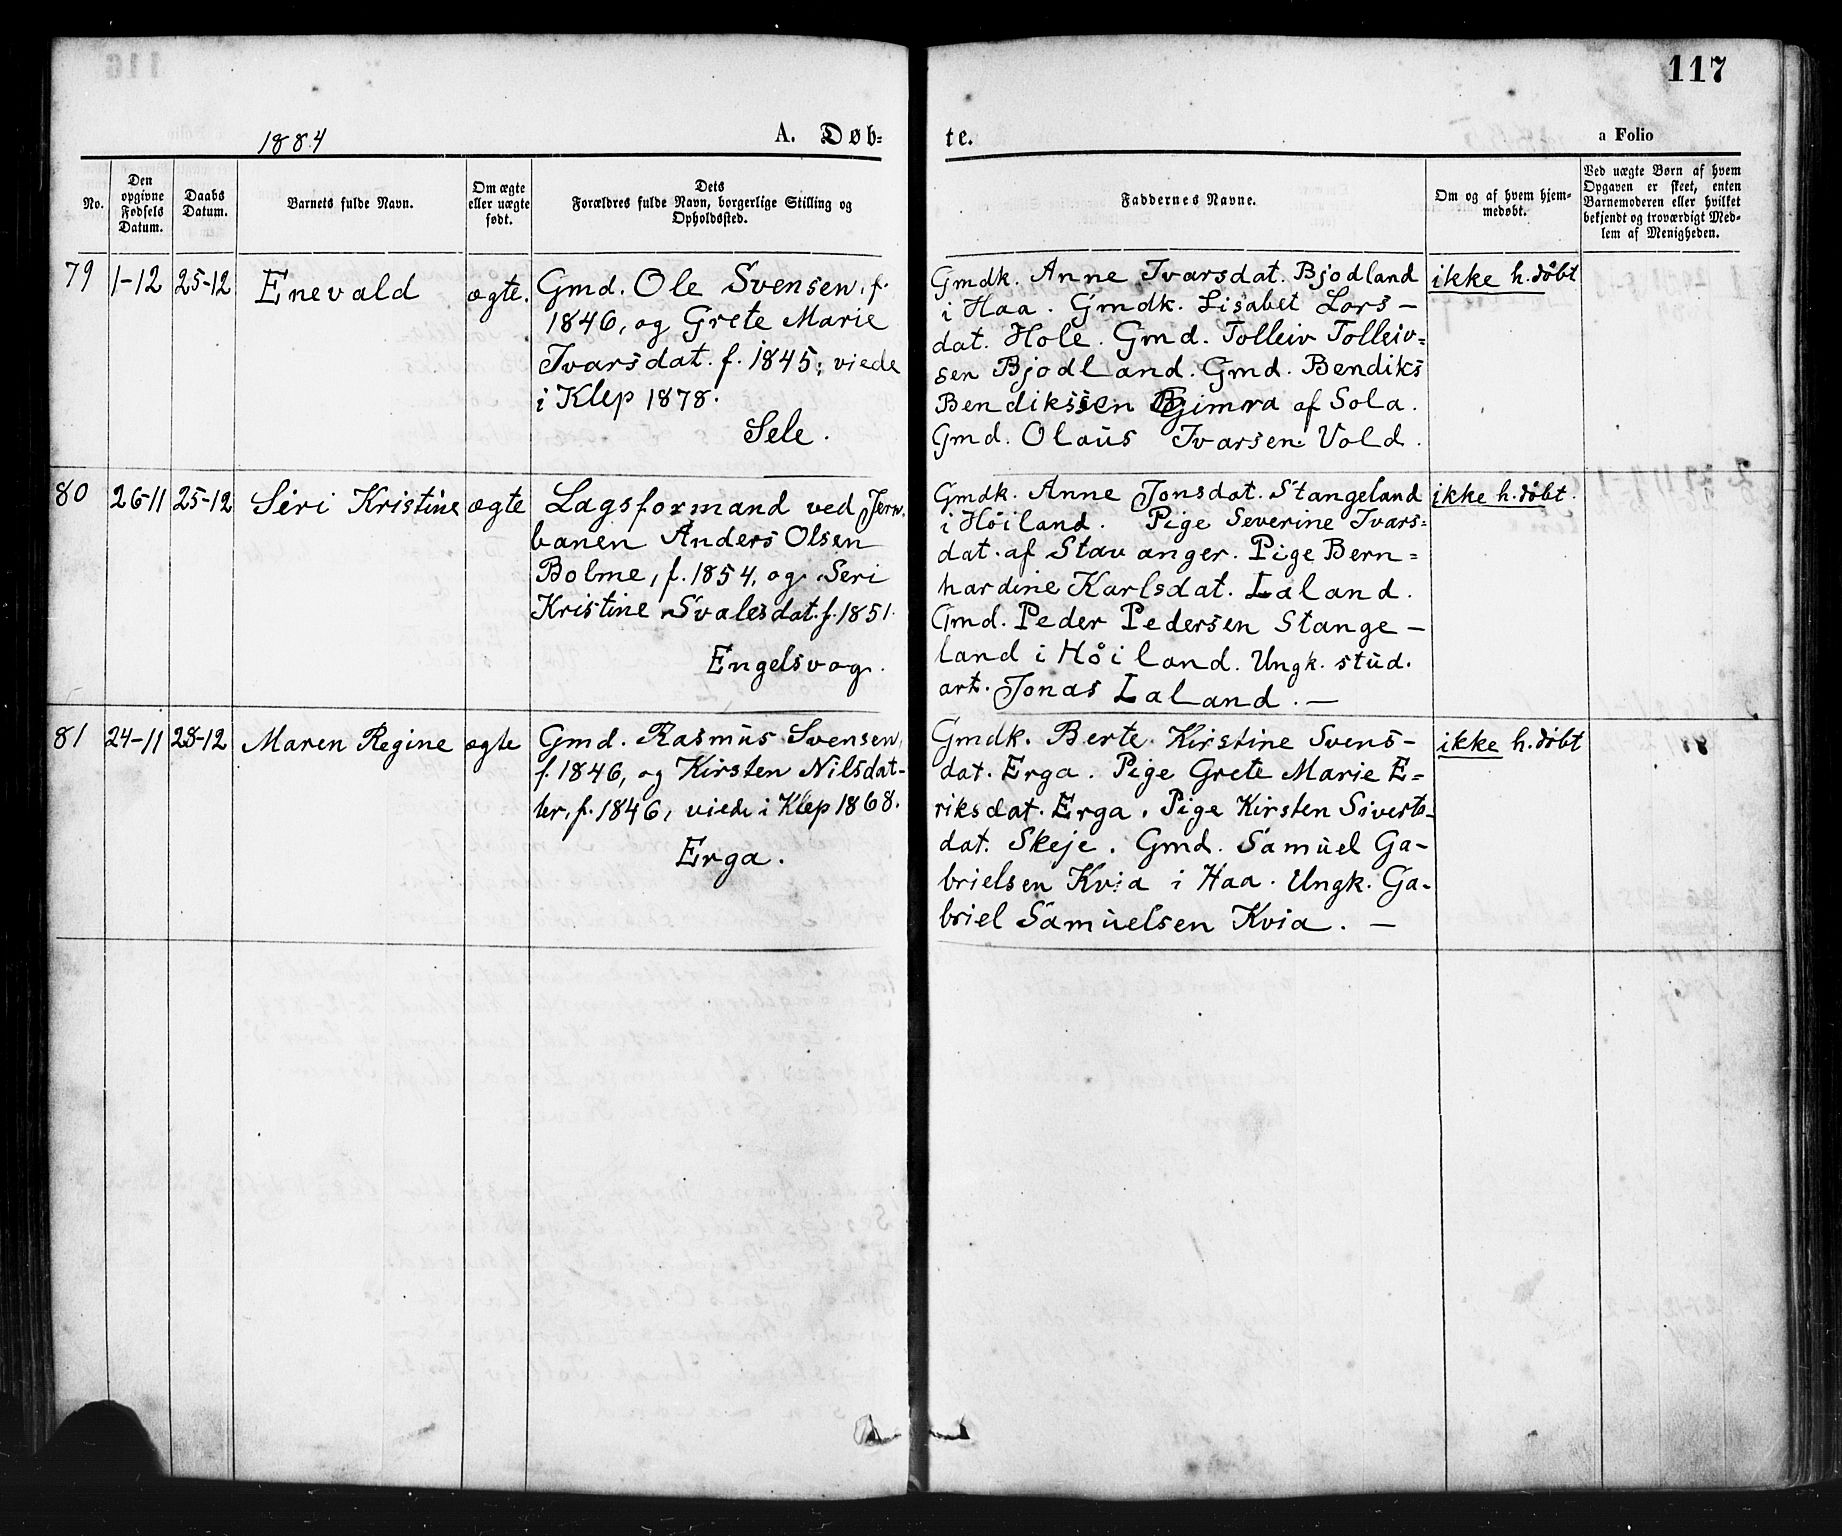 117
1884
A. Døb-
te.
a Folio
No.
Den
opgivne
Fødsels
Datum.
Daabs
Datum.
Barnets fulde Navn.
Om ægte
eller uægte
født.
Dets
Forældres fulde Navn, borgerlige Stilling og
Opholdssted.
Faddernes Navne.
Om og af hvem hjem-
medøbt.
Ved uægte Børn af hvem
Opgaven er skeet, enten
Barnemoderen eller hvilket
bekjendt og troværdigt Med-
lem af Menigheden.
79
1-12
25-12
Enevald
ægte.
Gmd. Ole Svensen, f.
1846, og Grete Marie
Ivarsdat. f. 1845; viede
i Klep 1878.
Sele.
Gmdk. Anne Ivarsdat. Bjodland
i Haa. Gmdk. Lisabet Lars-
dat. Hole. Gmd. Tolleiv Tolleiv=
sen Bjodland. Gmd. Bendiks
Bendikssen Gimra af Sola.
Gmd. Olaus Ivarsen Vold.
ikke h. døbt
80
26-11
25-12
Seri Kristine
ægte
Lagsformand ved Jern.
banen Anders Olsen
Bolme, f. 1854, og Seri
Kristine Svalesdat. f. 1851.
Engelsvog.
Gmdk. Anne Jonsdat. Stangeland
i Höiland. Pige Severine Ivars=
dat. af Stavanger. Pige Bern=
hardine Karlsdat. Laland.
Gmd. Peder Pedersen Stange-
land i Höiland. Ungk. stud.
art. Jonas Laland. —
ikke h. døbt.
81
24-11
28-12
Maren Regine
ægte
Gmd. Rasmus Svensen,
f. 1846, og Kirsten Nilsdat-
ter, f. 1846, viede i Klep 1868.
Erga.
Gmdk. Berte Kirstine Svens-
dat. Erga. Pige Grete Marie E=
riksdat. Erga. Pige Kirsten Siverts-
dat. Skeje. Gmd. Samuel Ga-
brielsen Kvia i Haa. Ungk. Ga-
briel Samuelsen Kvia. —
ikke h. døbt